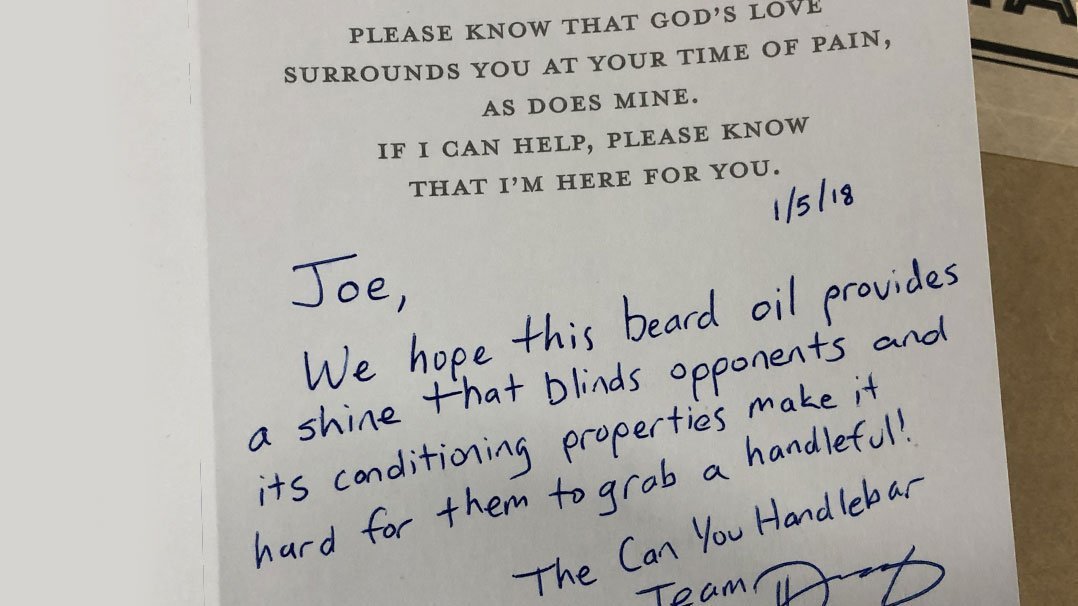 PLEASE KNOW THAT GOD'S LOVE
SURROUNDS YOU AT YOUR TIME OF PAIN,
AS DOES MINE.
IF I CAN HELP, PLEASE KNOW
THAT I'M HERE FOR YOU.
1/5/18
Joe,
We hope this beard oil provides
a shine that blinds opponents and
its conditioning properties make it
hard for them to grab a handleful!
The Can You Handlebar
Team